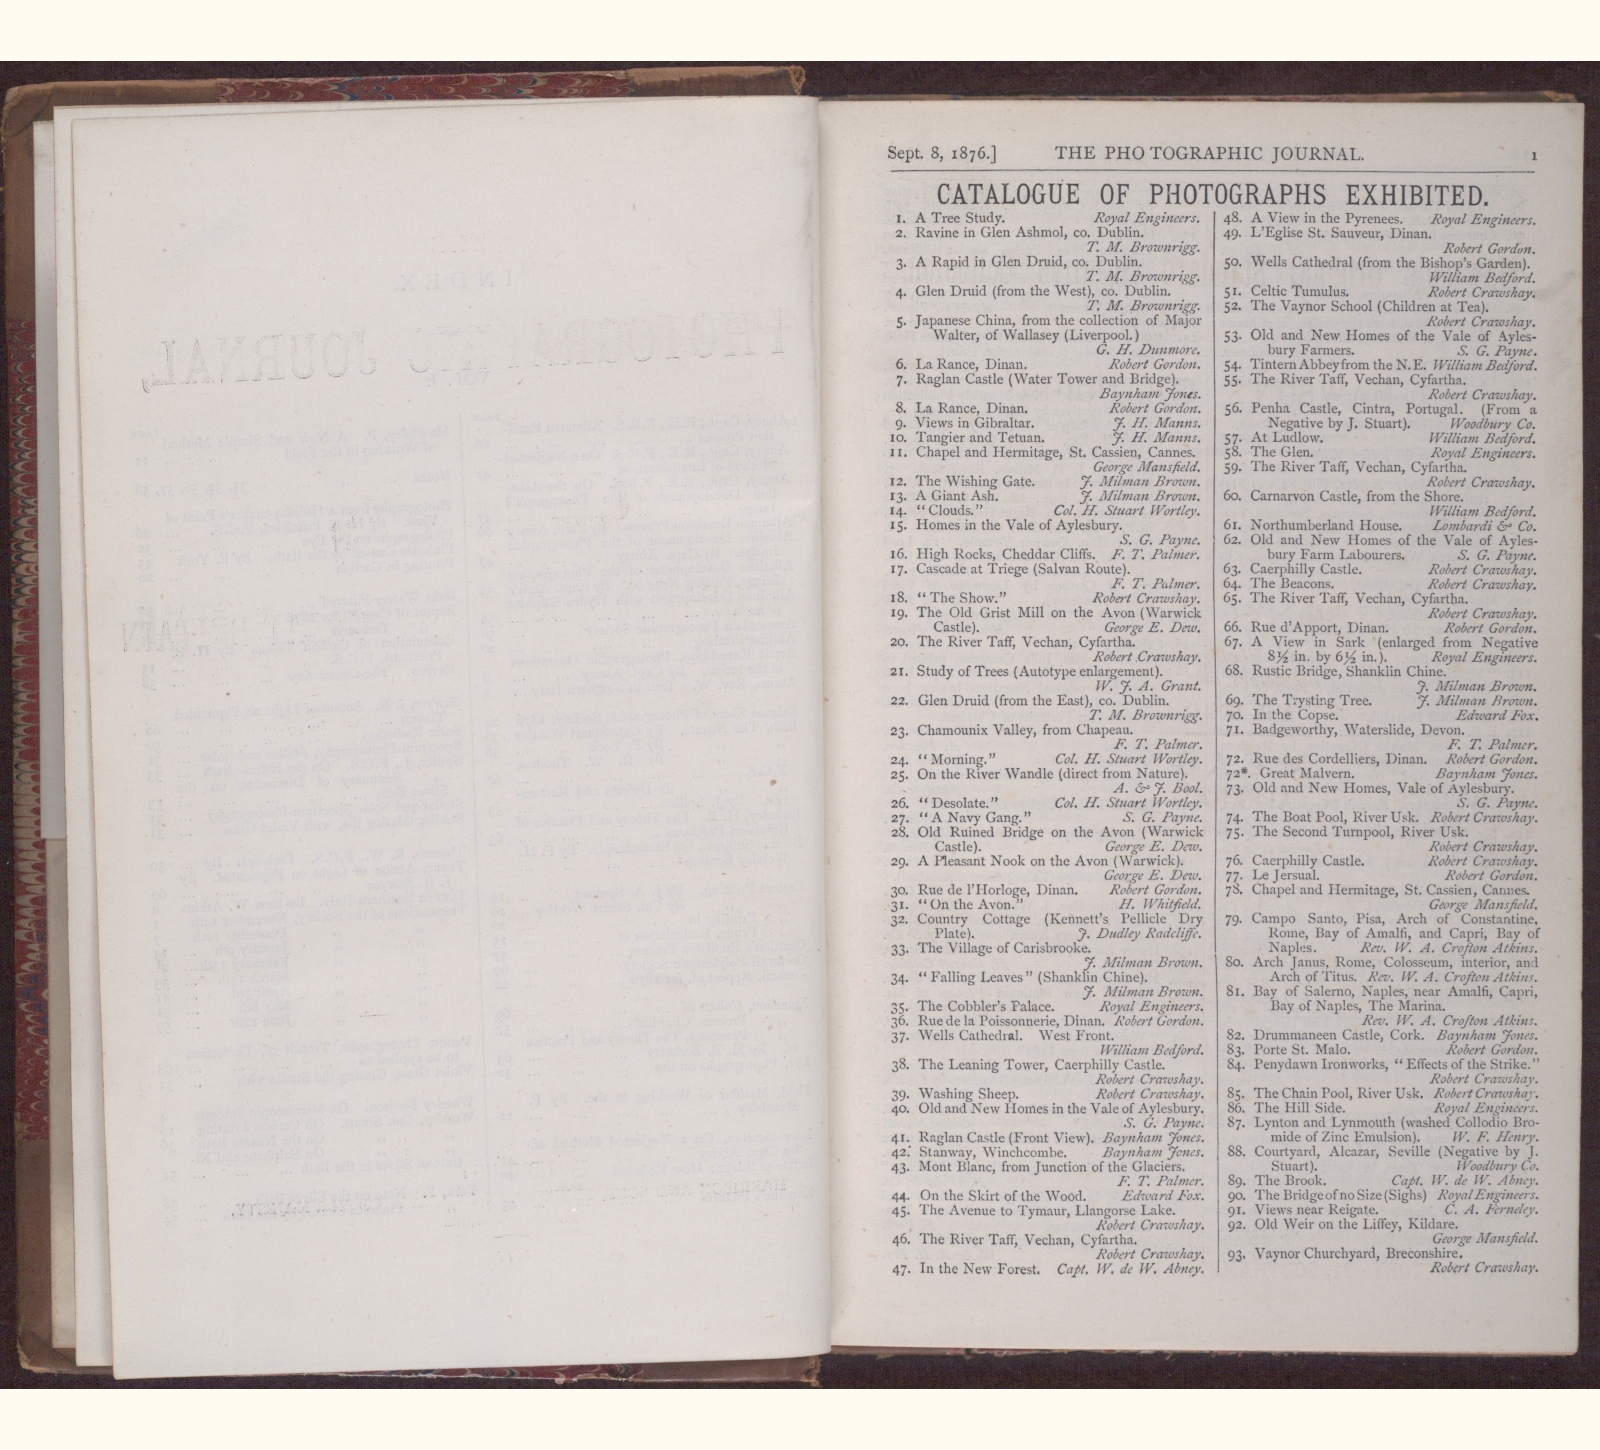 Sept. 8, 1876.] THE PHO TOGRAPHIC JOURNAL. 1
CATALOGUE OF PHOTOGRAPHS EXHIBITED.
1. A Tree Study. Royal Engineers.
2. Ravine in Glen Ashmol, co. Dublin.
T. M. Brownrigg.
3. A Rapid in Glen Druid, co. Dublin.
T. M. Brownrigg.
4. Glen Druid (from the West), co. Dublin.
T. M. Brownrigg.
5. Japanese China, from the collection of Major
Walter, of Wallasey (Liverpool.)
G. H. Dunmore.
6. La Rance, Dinan. Robert Gordon.
7. Raglan Castle (Water Tower and Bridge).
Baynham Jones.
8. La Rance, Dinan. Robert Gordon.
9. Views in Gibraltar. J. H. Manns.
10. Tangier and Tetuan. J. H. Manns.
11. Chapel and Hermitage, St. Cassien, Cannes.
George Mansfield.
12. The Wishing Gate. J. Milman Brown.
13. A Giant Ash. J. Milman Brown.
14. "Clouds." Col. H. Stuart Wortley.
15. Homes in the Vale of Aylesbury.
S. G. Payne.
16. High Rocks, Cheddar Cliffs. F. T. Palmer.
17. Cascade at Triege (Salvan Route).
F. T. Palmer.
18. "The Show." Robert Crawshay.
19. The Old Grist Mill on the Avon (Warwick
Castle). George E. Dew.
20. The River Taff, Vechan, Cyfartha.
Robert Crawshay.
21. Study of Trees (Autotype enlargement).
W. J. A. Grant.
22. Glen Druid (from the East), co. Dublin.
T. M. Brownrigg.
23. Chamounix Valley, from Chapeau.
F. T. Palmer.
24. "Morning." Col. H. Stuart Wortley.
25. On the River Wandle (direct from Nature).
A. & J. Bool.
26. "Desolate." Col. H. Stuart Wortley.
27. "A Navy Gang." S. G. Payne.
28. Old Ruined Bridge on the Avon (Warwick
Castle). George E. Dew.
29. A Pleasant Nook on the Avon (Warwick).
George E. Dew.
30. Rue de l'Horloge, Dinan. Robert Gordon.
31. "On the Avon." H. Whitfield.
32. Country Cottage (Kennett's Pellicle Dry
Plate). J. Dudley Radcliffe.
33. The Village of Carisbrooke.
J. Milman Brown.
34. "Falling Leaves" (Shanklin Chine).
J. Milman Brown.
35. The Cobbler's Palace. Royal Engineers.
36. Rue de la Poissonnerie, Dinan. Robert Gordon.
37. Wells Cathedral. West Front.
William Bedford.
38. The Leaning Tower, Caerphilly Castle.
Robert Crawshay.
39. Washing Sheep. Robert Crawshay.
40. Old and New Homes in the Vale of Aylesbury.
S. G. Payne.
41. Raglan Castle (Front View). Baynham Jones.
42. Stanway, Winchcombe. Baynham Jones.
43. Mont Blanc, from Junction of the Glaciers.
F. T. Palmer.
44. On the Skirt of the Wood. Edward Fox.
45. The Avenue to Tymaur, Llangorse Lake.
Robert Crawshay.
46. The River Taff, Vechan, Cyfartha.
Robert Crawshay.
47. In the New Forest. Capt. W. de W. Abney.
48. A View in the Pyrenees. Royal Engineers.
49. L'Eglise St. Sauveur, Dinan.
Robert Gordon.
50. Wells Cathedral (from the Bishop's Garden).
William Bedford.
51. Celtic Tumulus. Robert Crawshay.
52. The Vaynor School (Children at Tea).
Robert Crawshay.
53. Old and New Homes of the Vale of Ayles-
bury Farmers. S. G. Payne.
54. Tintern Abbey from the N.E. William Bedford.
55. The River Taff, Vechan, Cyfartha.
Robert Crawshay.
56. Penha Castle, Cintra, Portugal. (From a
Negative by J. Stuart). Woodbury Co.
57. At Ludlow. William Bedford.
58. The Glen. Royal Engineers.
59. The River Taff, Vechan, Cyfartha.
Robert Crawshay.
60. Carnarvon Castle, from the Shore.
William Bedford.
61. Northumberland House. Lombardi & Co.
62. Old and New Homes of the Vale of Ayles-
bury Farm Labourers. S. G. Payne.
63. Caerphilly Castle. Robert Crawshay.
64. The Beacons. Robert Crawshay.
65. The River Taff, Vechan, Cyfartha.
Robert Crawshay.
66. Rue d'Apport, Dinan. Robert Gordon.
67. A View in Sark (enlarged from Negative
8½ in. by 6½ in.). Royal Engineers.
68. Rustic Bridge, Shanklin Chine.
J. Milman Brown.
69. The Trysting Tree. J. Milman Brown.
70. In the Copse. Edward Fox.
71. Badgeworthy, Waterslide, Devon.
F. T. Palmer.
72. Rue des Cordelliers, Dinan. Robert Gordon.
72*. Great Malvern. Baynham Jones.
73. Old and New Homes, Vale of Aylesbury.
S. G. Payne.
74. The Boat Pool, River Usk. Robert Crawshay.
75. The Second Turnpool, River Usk.
Robert Crawshay.
76. Caerphilly Castle. Robert Crawshay.
77. Le Jersual. Robert Gordon.
78. Chapel and Hermitage, St. Cassien, Cannes.
George Mansfield.
79. Campo Santo, Pisa, Arch of Constantine,
Rome, Bay of Amalfi, and Capri, Bay of
Naples. Rev. W. A. Crofton Atkins.
80. Arch Janus, Rome, Colosseum, interior, and
Arch of Titus. Rev. W. A. Crofton Atkins.
81. Bay of Salerno, Naples, near Amalfi, Capri,
Bay of Naples, The Marina.
Rev. W. A. Crofton Atkins.
82. Drummaneen Castle, Cork. Baynham Jones.
83. Porte St. Malo. Robert Gordon.
84. Penydawn Ironworks, "Effects of the Strike."
Robert Crawshay.
85. The Chain Pool, River Usk. Robert Crawshay.
86. The Hill Side. Royal Engineers.
87. Lynton and Lynmouth (washed Collodio Bro-
mide of Zinc Emulsion). W. F. Henry.
88. Courtyard, Alcazar, Seville (Negative by J.
Stuart). Woodbury Co.
89. The Brook. Capt. W. de W. Abney.
90. The Bridge of no Size (Sighs) Royal Engineers.
91. Views near Reigate. C. A. Ferneley.
92. Old Weir on the Liffey, Kildare.
George Mansfield.
93. Vaynor Churchyard, Breconshire.
Robert Crawshay.